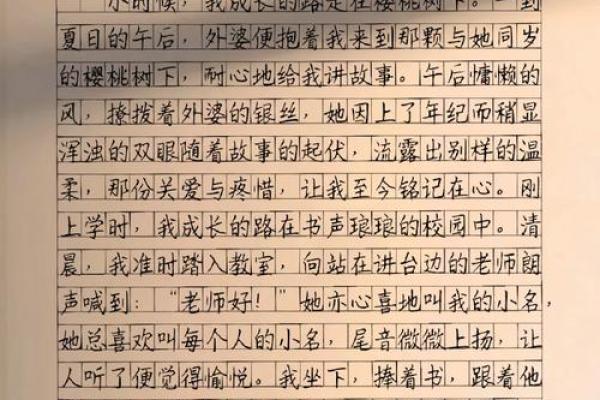 小时候，我成长的路是在樱桃树下。一到
夏日的午后，外婆便抱着我来到那颗与她同岁
的樱桃树下，耐心地给我讲故事。午后慵懒的
风，撩拨着外婆的银丝，她因上了年纪而稍显
浑浊的双眼随着故事的起伏，流露出别样的温
柔，那份关爱与疼惜，让我至今铭记在心。刚
上学时，我成长的路在书声琅琅的校园中。清
晨，我准时踏入教室，向站在讲台边的老师朗
声喊到：“老师好！”她亦心喜地叫我的小名，
她总喜欢叫每个人的小名，尾音微微上扬，让
人听了便觉得愉悦。我坐下，捧着书，跟着他